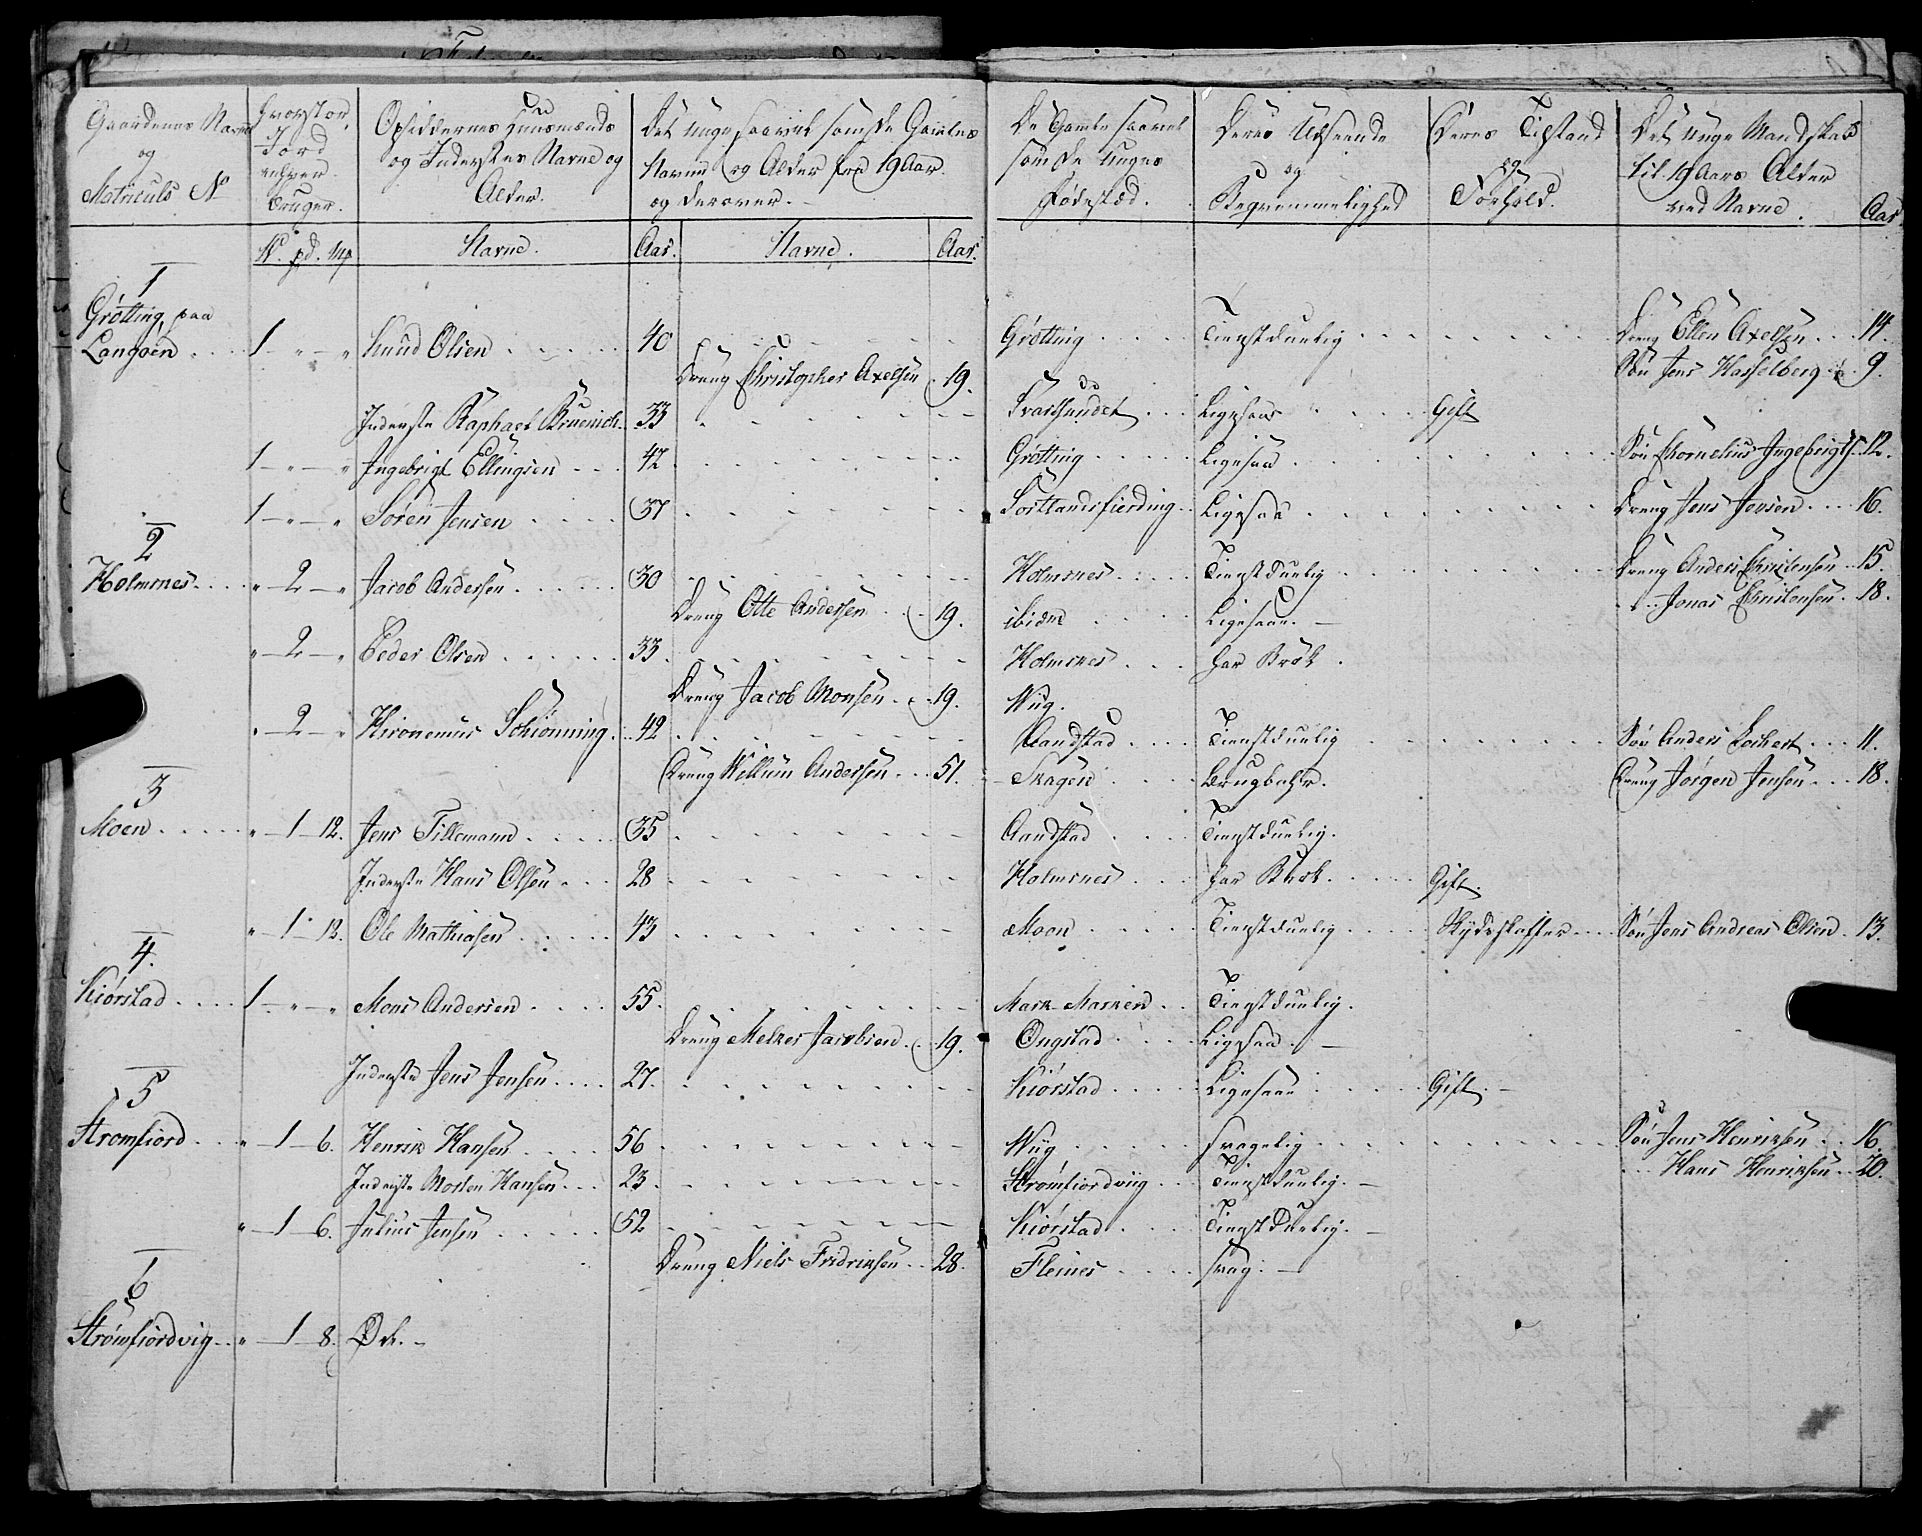 Gaardenes Navne og Matriculs No | Hvorstor Jord enhver bruger. | Opsiddernes Huusmænds og Inderster Navne og Alder. | Det Unge saavel som de Gamles Navne og Alder fra 19 Aar og derover. | De Gamle saavel som de Unges Fødestæd. | Deres Udseende og Beqvemmelighed | Deres Tilstand og Forhold. | Det unge Mandskab til 19 Aars Alder ved Navne. | Aar
W. pd. Mk | Navne. | Aar. | Navne. | Aar.
1
Grøtting paa
Langøen . . . 1 - " - " Knud Olsen . . . . . 40 | Grøtting . . . . Tienstduelig . . . . . . Dreng Ellen Axelsen . . . 14.
Dreng Christopher Axelsen . 19. | Søn Jens Hasselberg . . 9.
Inderste Raphael Bruenich . 33 | Svartsundet . . . Ligesaa . . . . Gift
1 - " - " Ingebrigt Ellingsen . . . 42 . | Grøtting . . . . . Ligesaa . . . . . . Søn Chornelius Ingebrigts. 12.
1 - " - " Søren Jensen . . . . . 37 . | Sortlandsfierding . . Ligesaa . . . . . . Dreng Jens Jensen . . . . 16.
2
Holmsnes . . . " - 2 - " Jacob Andersen . . . . . 30 . | Holmsnes . . . . Tienstduelig . . . . . . Dreng Anders Christensen . . 15.
Dreng Otte Andersen . . . 19. | ibidm . . . . Ligesaae. - | . . . Jonas Christensen . 18.
" - 2 - " Peder Olsen . . . . . 33 . | Holmsnes . . . har Brok .
Dreng Jacob Monsen . . 19. | Wiig .
" - 2 - " Hironemus Schiønning . . 42 . | Aandstad . . . . Tienstduelig . . . . . . Søn Anders Lockert . . . 11.
Dreng Willum Andersen . . . 51. | Skagen . . . . Brugbahr. | Dreng Jørgen Jensen . . . 18.
3
Moen . . . . . " - 1 - 12. Jens Tillemann . . . . . 35 . | Aandstad . . . . Tienstduelig.
Inderste Hans Olsen . . . 28 . | Holmsnes . . . har Brok . . . . . Gift.
" - 1 - 12. Ole Mathiasen . . . . . 43 . | Moen . . . . . Tienstduelig . . . . Skydskaffer . . . Søn Jens Andreas Olsen . 13.
4.
Kiørstad . . . . 1 - " - " Mons Andersen . . . . 55 . | Mark Marken . . Tienstduelig.
Dreng Melker Jacobsen . . 19. | Ongstad . . . . Ligesaa . -
Inderste Jens Jensen . . . . 27. | Kiørstad . . . . Ligesaae . . . . . Gift . -
5
Strømfiord . . . " - 1 - 6. Henrik Hansen . . . . 56 . | Wiig . . . . . svagelig . . . . . . Søn Jens Henriksen . . 16.
Inderste Morten Hansen . . . 23 . | Strømfiordviig . . . Tienstduelig. - | . . . Hans Henriksen . . 20.
" - 1 - 6. Julius Jensen . . . . . 52 | Kiørstad . . . . Tienstduelig. -
Dreng Niels Fridriksen . . 28. | Fleines . . . . svag. -
6
Strømfiordvig . . " - 1 - 8. Øde. -